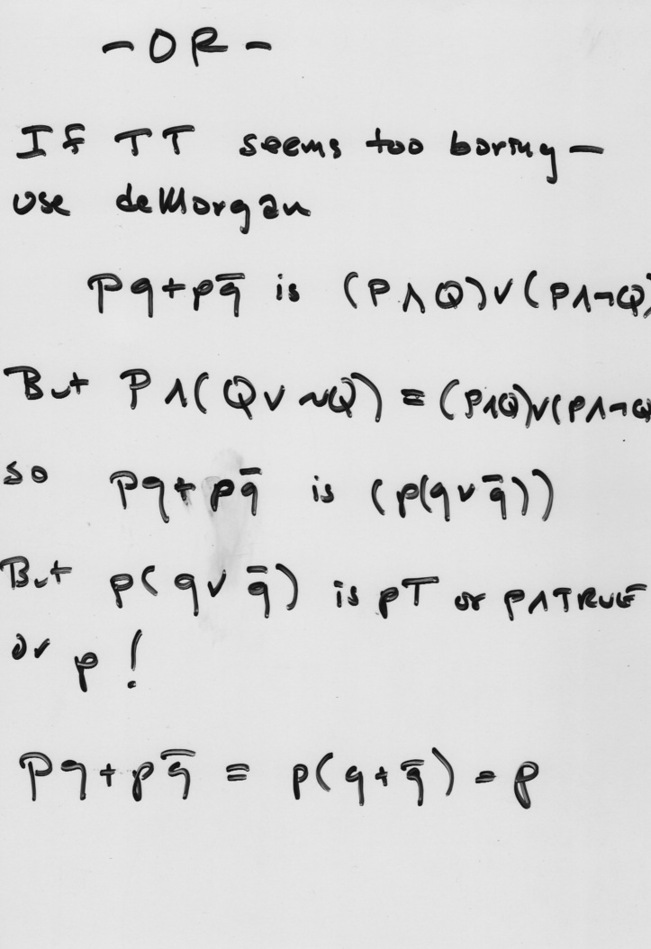 - OR -
If TT seems too boring -
use deMorgan
Pq+pq̅ is (P∧Q)∨(P∧¬Q)
But P∧(Q∨~Q) ≡ (P∧Q)∨(P∧¬Q
so Pq+pq̅ is (p(q∨q̅))
But p(q∨q̅) is pT or P∧TRUE
or p!
Pq+pq̅ ≡ p(q+q̅) = p